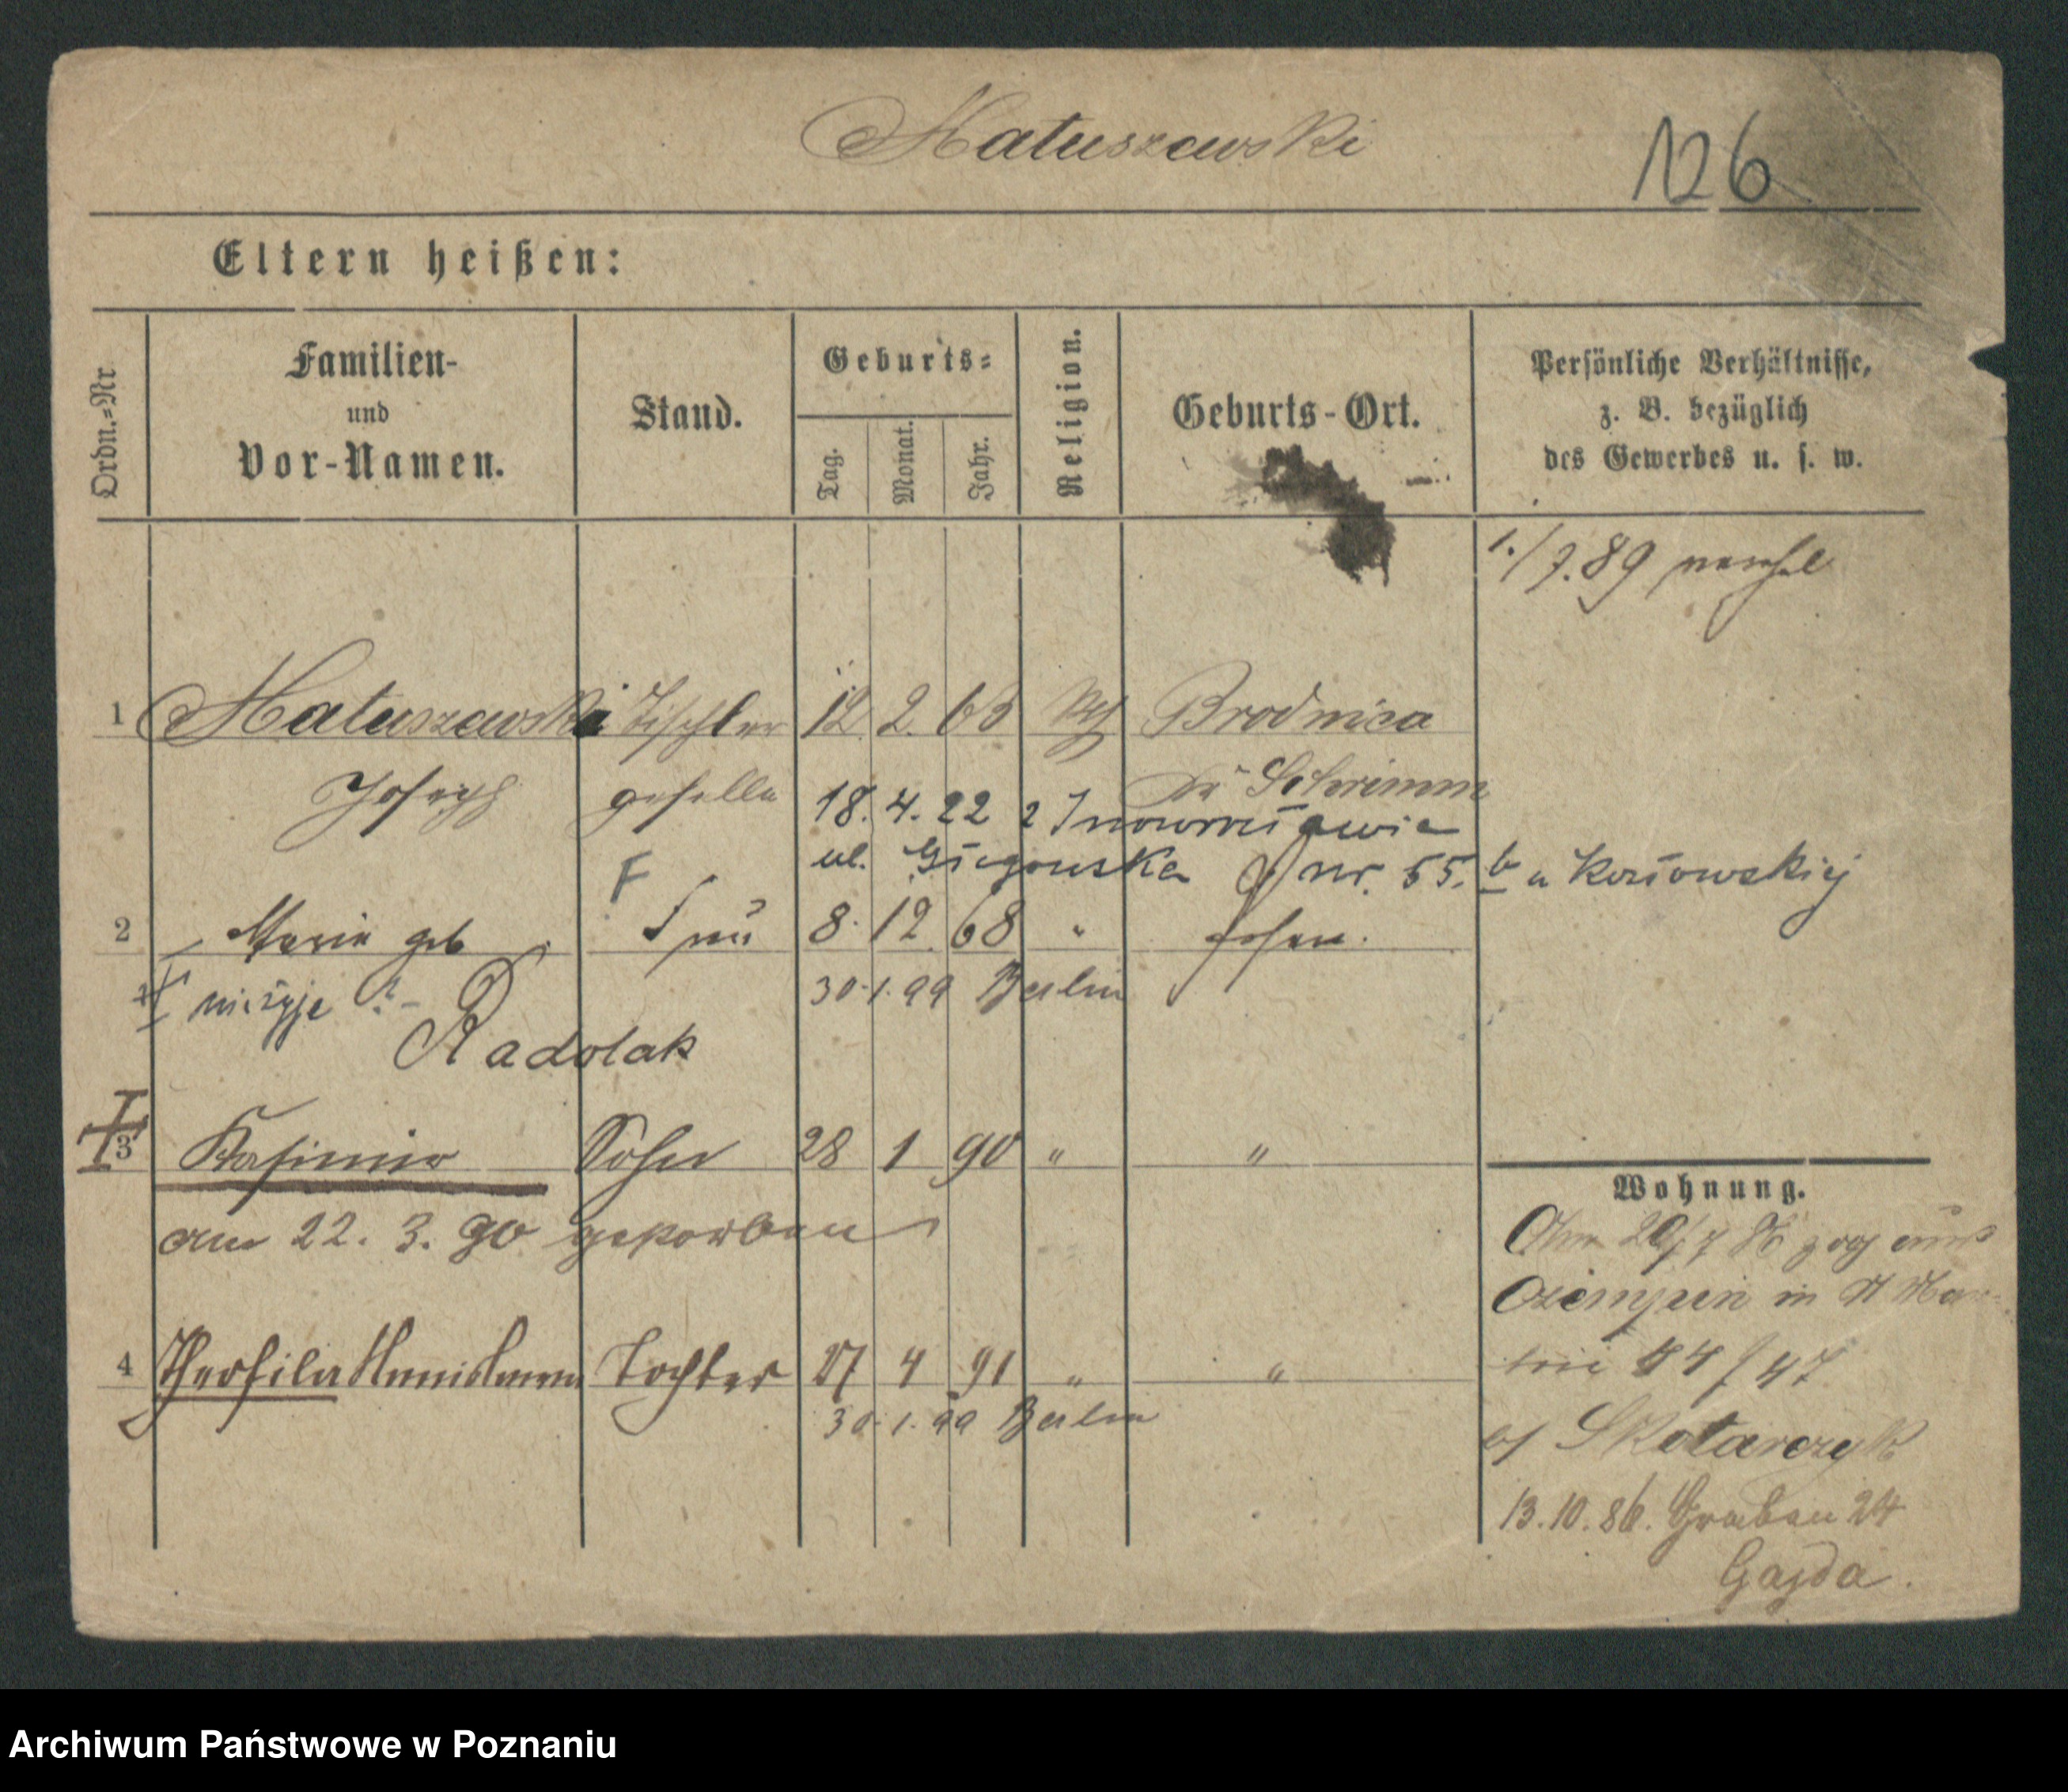 Matuszewski
126
Eltern heißen:
Ordn.-Nr
Familien-
und
Vor-Namen.
Stand.
Geburts-
Tag.
Monat.
Jahr.
Religion.
Geburts-Ort.
Persönliche Verhältnisse,
z. B. bezüglich
des Gewerbes u. s. w.
1./7.89
1 Matuszewski Tischler 12 2. 63 Brodnica
Joseph geselle Schrimm
18. 4. 22 z
ul. nr. 55. b u
F
2 Maria geb Frau 8. 12 68 " Posen.
nieżyje 30.1.99 Berlin
Radolak
3 Kasimir Sohn 28 1 90 " "
am 22. 3. 90 gestorben
4 Theofila Tochter 27 4 91 " "
30.1.99 Berlin
Wohnung.
zog aus
in
44/47
b/ Skotarczyk
13.10.86. Graben 24
Gajda.
Archiwum Państwowe w Poznaniu